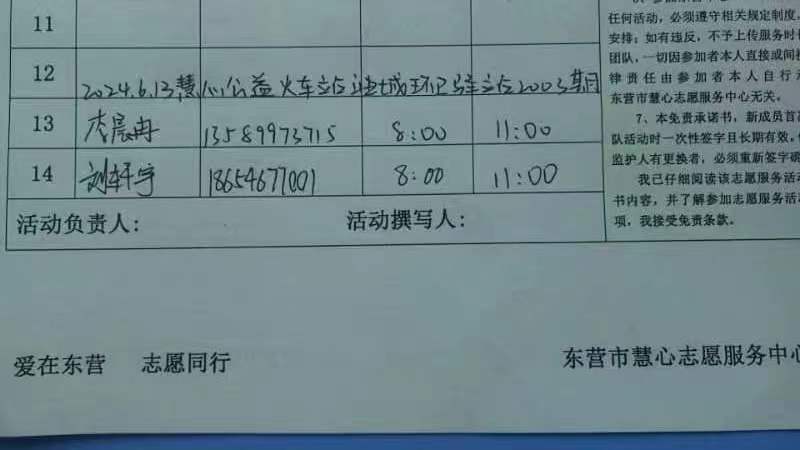 11
12 2024.6.13慧心公益火车站边城环卫驿站2003期
13 李晨冉 13589973715 8:00 11:00
14 刘轩宇 18654677001 8:00 11:00
活动负责人: 活动撰写人:
任何活动，必须遵守相关规定制度，
安排；如有违反，不予上传服务时长
团队，一切因参加者本人直接或间接
律责任由参加者本人自行承
东营市慧心志愿服务中心无关。
7、本免责承诺书，新成员首
队活动时一次性签字且长期有效，
监护人有更换者，必须重新签字确
我已仔细阅读该志愿服务活动
书内容，并了解参加志愿服务活动
项，我接受免责条款。
爱在东营 志愿同行
东营市慧心志愿服务中心